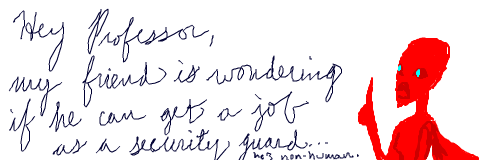 Hey Professor,
my friend is wondering
if he can get a job
as a security guard...
he's non-human.